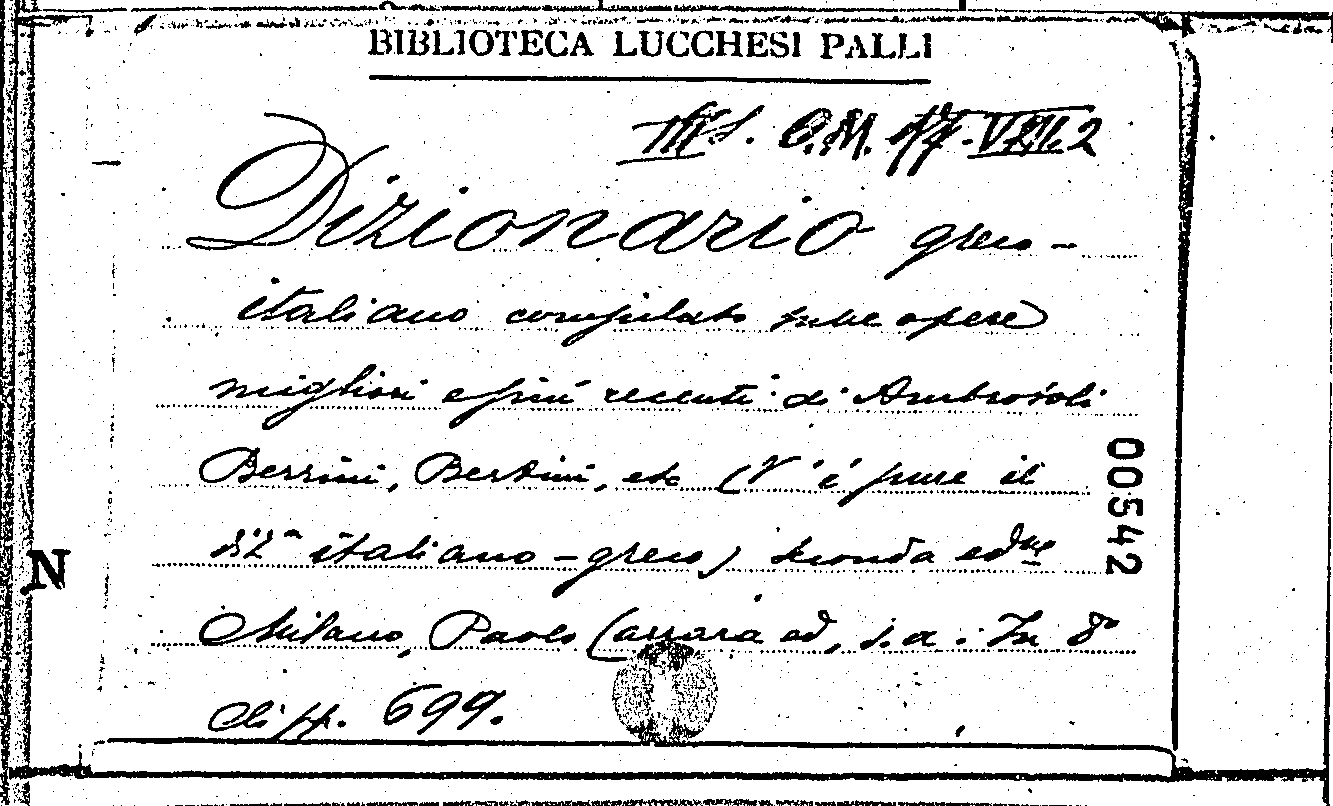 BIBLIOTECA LUCCHESI PALLI
VIII.2
Dizionario greco-
italiano compilato sulle opere
migliori e più recenti di Ambrosoli
Berrini, Bertini, etc (V'é pure il
diz° italiano-greco) seconda edne
Milano, Paolo Carrara ed, s.a. In 8°
di pp. 699.
00542
N